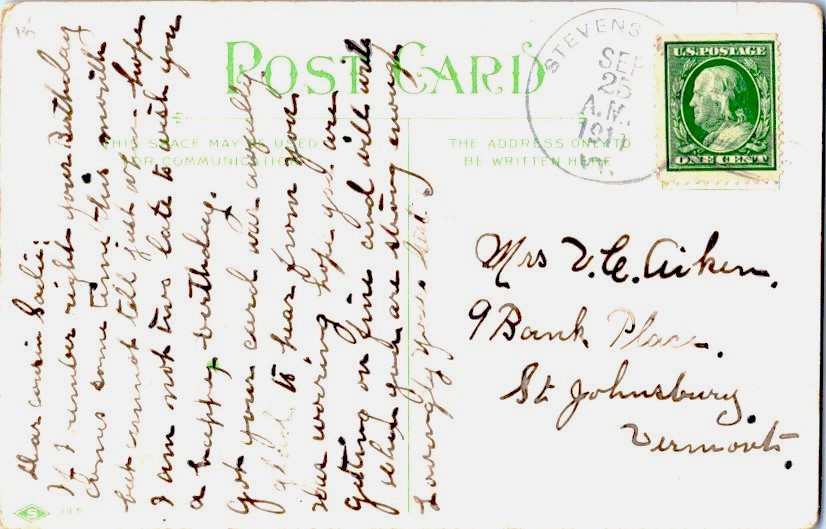 POST CARD
THIS SPACE MAY BE USED
FOR COMMUNICATION
THE ADDRESS ONLY TO
BE WRITTEN HERE
STEVENS
SEP
25
A.M.
1911
U.S. POSTAGE
ONE CENT
Dear cousin Sadie:
If I rember right your Birthday
comes some time this month
but cannot tell just when - hope
I am not two late to wish you
a happy birthday.
Got your card was awfully
glad to hear from you
was woring hope you are
getting on fine and will write
when you are strong enough
Lovingly yours
Mrs V. C. Aiken.
9 Bank Place.
St Johnsbury.
Vermont.
S